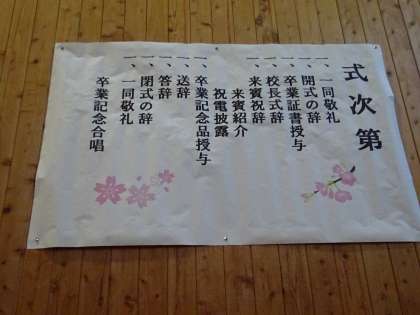 式次第
一、一同敬礼
一、開式の辞
一、卒業証書授与
一、校長式辞
一、来賓祝辞
来賓紹介
祝電披露
一、卒業記念品授与
一、送辞
一、答辞
一、閉式の辞
一、一同敬礼
卒業記念合唱